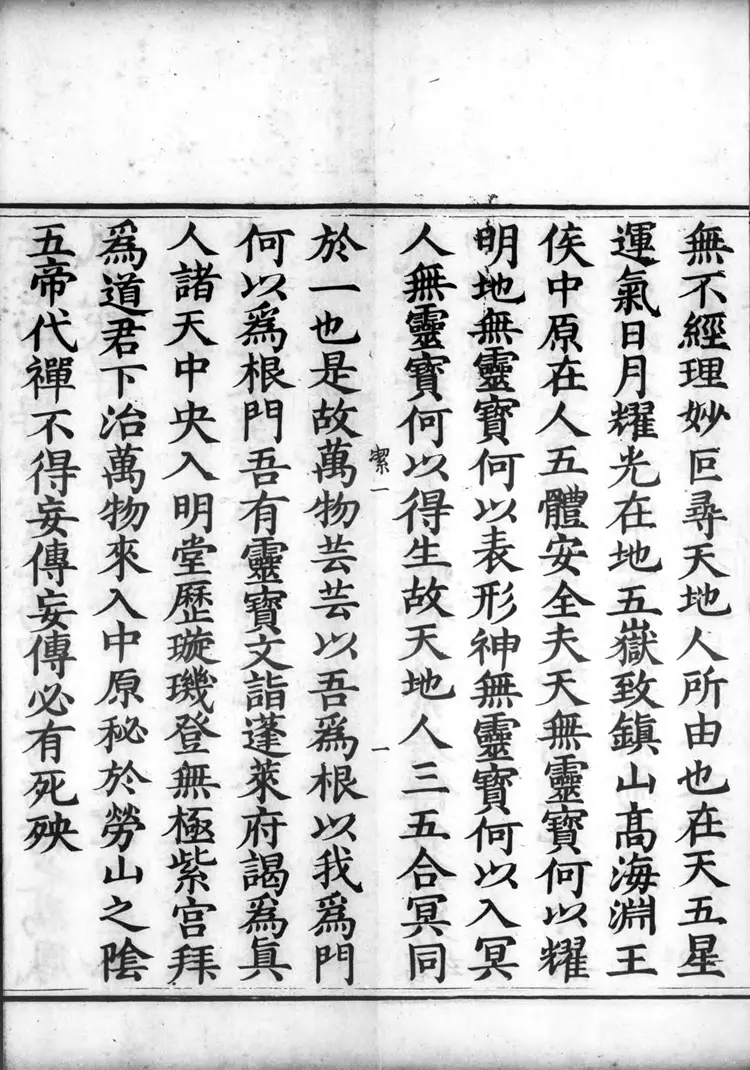 無不經理妙叵尋天地人所由也在天五星
運氣日月耀光在地五嶽致鎮山高海淵王
侯中原在人五體安全夫天無靈寶何以耀
明地無靈寶何以表形神無靈寶何以入冥
人無靈寶何以得生故天地人三五合冥同
絜一
一
於一也是故萬物芸芸以吾爲根以我爲門
何以爲根門吾有靈寶文詣蓬萊府謁爲眞
人諸天中央入明堂歷璇璣登無極紫宮拜
爲道君下治萬物來入中原秘於勞山之陰
五帝代禪不得妄傳妄傳必有死殃